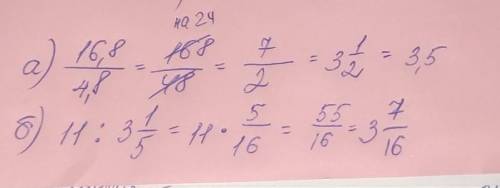 на 24
а) 16,8/4,8 = 168/48 = 7/2 = 3 1/2 = 3,5
б) 11 : 3 1/5 = 11 · 5/16 = 55/16 = 3 7/16